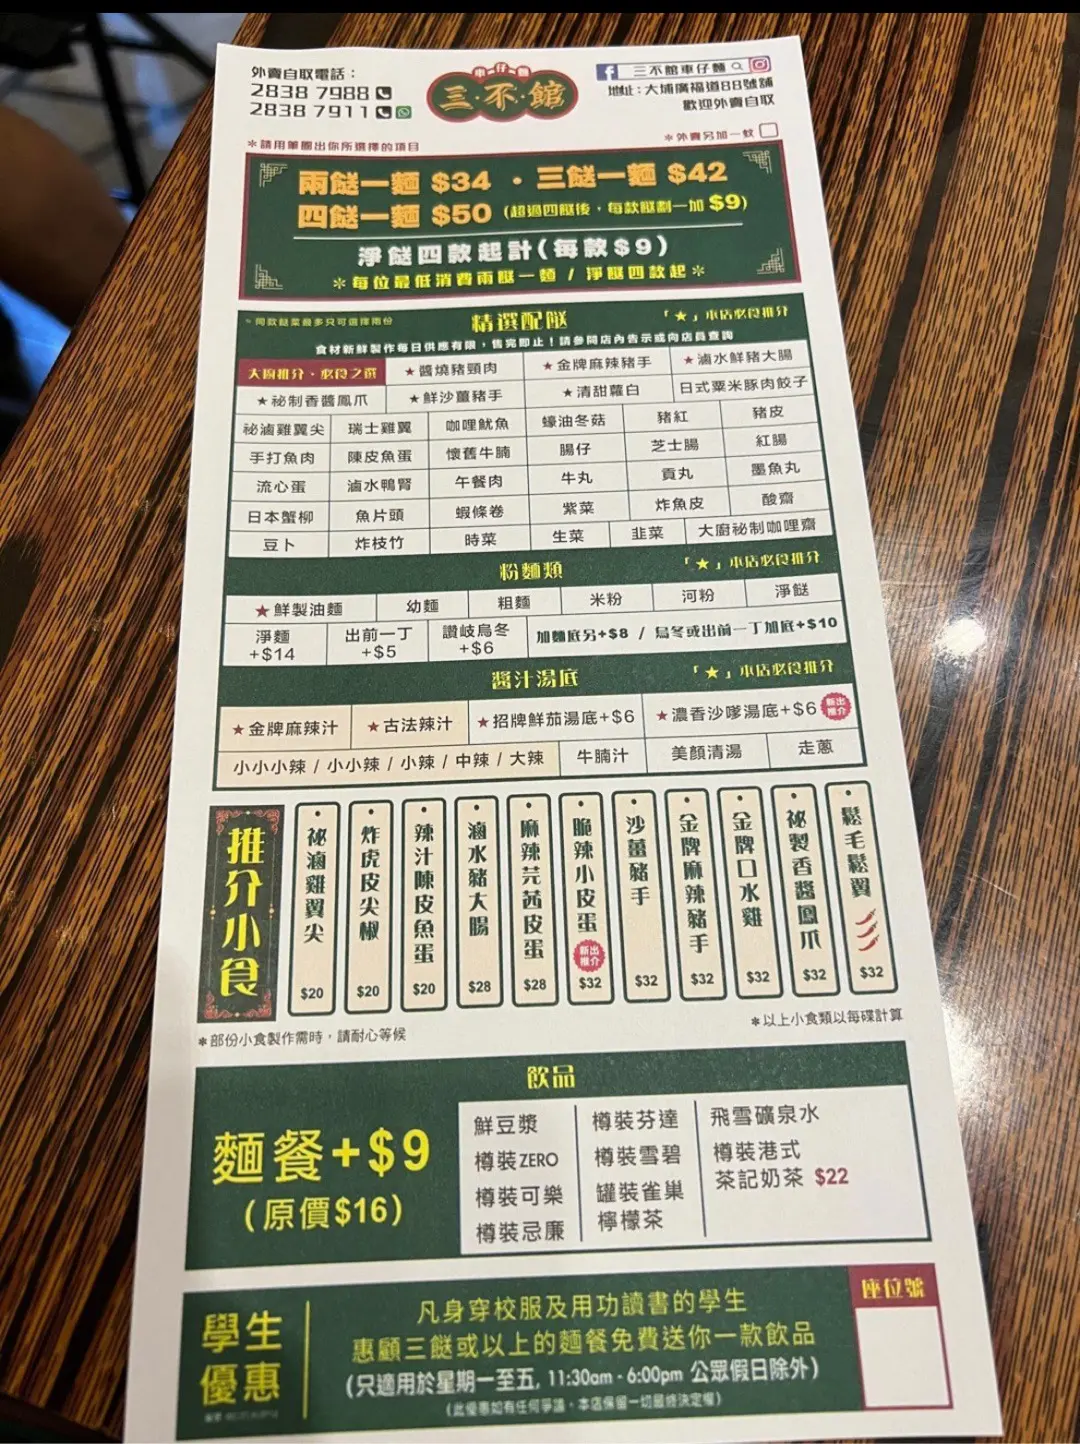 外賣自取電話：
2838 7988
2838 7911
車仔麵
三·不·館
三不館車仔麵
地址：大埔廣福道88號舖
歡迎外賣自取
＊請用筆圈出你所選擇的項目
＊外賣另加一蚊
兩餸一麵 $34 · 三餸一麵 $42
四餸一麵 $50 (超過四餸後，每款餸劃一加 $9)
淨餸四款起計(每款$9)
＊每位最低消費兩餸一麵 / 淨餸四款起＊
＊同款餸菜最多只可選擇兩份
精選配餸
「★」本店必食推介
食材新鮮製作每日供應有限，售完即止！請參閱店內告示或向店員查詢
大廚推介、必食之選 ★醬燒豬頸肉 ★金牌麻辣豬手 ★滷水鮮豬大腸
★祕制香醬鳳爪 ★鮮沙薑豬手 ★清甜蘿白 日式粟米豚肉餃子
祕滷雞翼尖 瑞士雞翼 咖哩魷魚 蠔油冬菇 豬紅 豬皮
手打魚肉 陳皮魚蛋 懷舊牛腩 腸仔 芝士腸 紅腸
流心蛋 滷水鴨腎 午餐肉 牛丸 貢丸 墨魚丸
日本蟹柳 魚片頭 蝦條卷 紫菜 炸魚皮 酸齋
豆卜 炸枝竹 時菜 生菜 韭菜 大廚祕制咖哩齋
粉麵類
「★」本店必食推介
★鮮製油麵 幼麵 粗麵 米粉 河粉 淨餸
淨麵 +$14 出前一丁 +$5 讚岐烏冬 +$6 加麵底另+$8 / 烏冬或出前一丁加底+$10
醬汁湯底
「★」本店必食推介
★金牌麻辣汁 ★古法辣汁 ★招牌鮮茄湯底+$6 ★濃香沙嗲湯底+$6 新出推介
小小小辣 / 小小辣 / 小辣 / 中辣 / 大辣 牛腩汁 美顏清湯 走蔥
推介小食
祕滷雞翼尖 $20
炸虎皮尖椒 $20
辣汁陳皮魚蛋 $20
滷水豬大腸 $28
麻辣芫茜皮蛋 $28
脆辣小皮蛋 新出推介 $32
沙薑豬手 $32
金牌麻辣豬手 $32
金牌口水雞 $32
祕製香醬鳳爪 $32
鬆毛鬆翼 $32
＊部份小食製作需時，請耐心等候
＊以上小食類以每碟計算
飲品
麵餐+$9
(原價$16)
鮮豆漿
樽裝ZERO
樽裝可樂
樽裝忌廉
樽裝芬達
樽裝雪碧
罐裝雀巢
檸檬茶
飛雪礦泉水
樽裝港式
茶記奶茶 $22
學生
優惠
凡身穿校服及用功讀書的學生
惠顧三餸或以上的麵餐免費送你一款飲品
(只適用於星期一至五, 11:30am - 6:00pm 公眾假日除外)
(此優惠如有任何爭議，本店保留一切最終決定權)
座位號